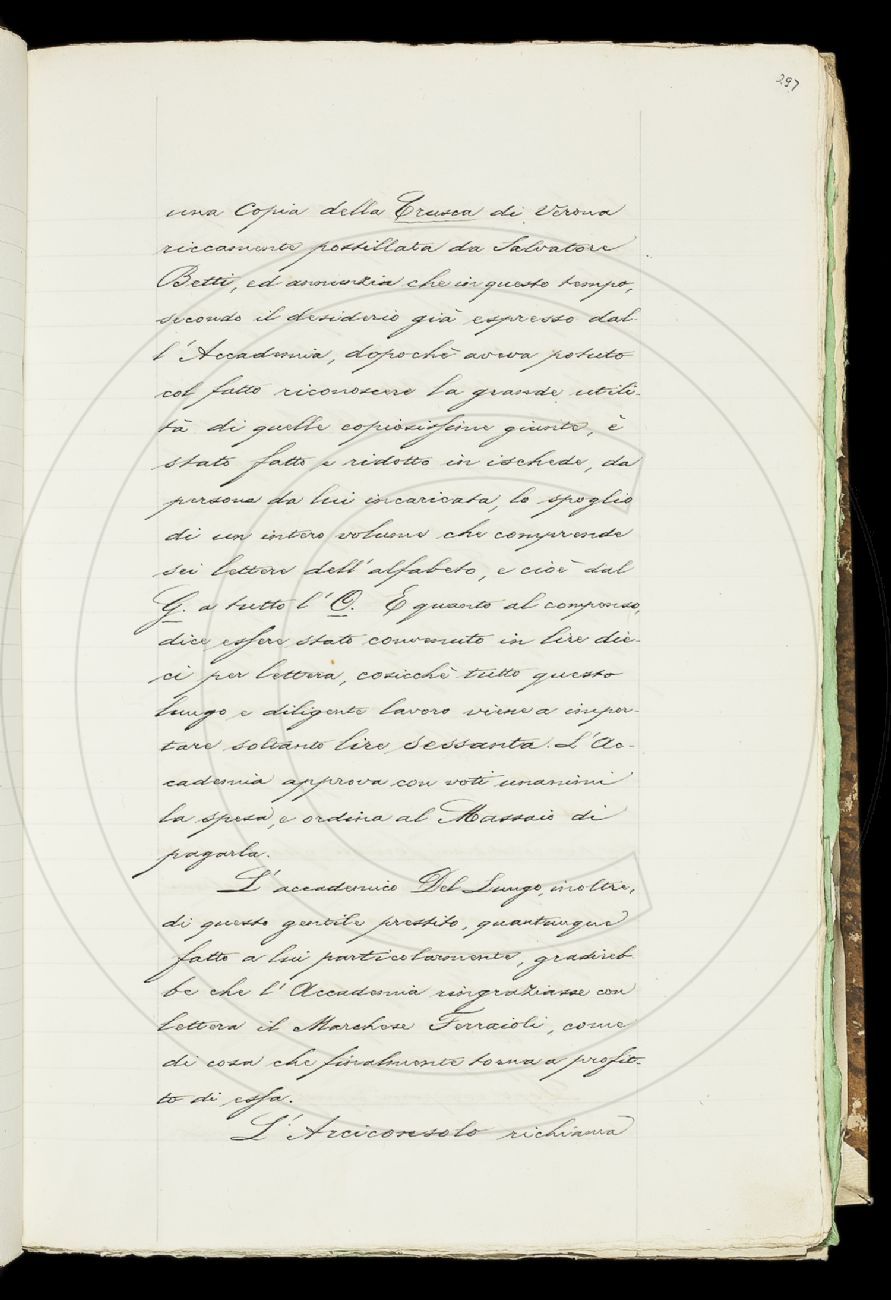 297
una Copia della Crusca di Verona
riccamente postillata da Salvatore
Betti, ed annunzia che in questo tempo,
secondo il desiderio già espresso dal-
l'Accademia, dopochè aveva potuto
col fatto riconoscere la grande utili-
tà di quelle copiosissime giunte, è
stato fatto e ridotto in ischede, da
persona da lui incaricata, lo spoglio
di un intero volume che comprende
sei lettere dell'alfabeto, e cioè dal
G. a tutto l'O. E quanto al compenso,
dice essere stato convenuto in lire die-
ci per lettera, cosicchè tutto questo
lungo e diligente lavoro viene a impor-
tare soltanto lire sessanta. L'Ac-
cademia approva con voti unanimi
la spesa, e ordina al Massaio di
pagarla.
L'accademico Del Lungo, inoltre,
di questo gentile prestito, quantunque
fatto a lui particolarmente, gradireb-
be che l'Accademia ringraziasse con
lettera il Marchese Ferraioli, come
di cosa che finalmente torna a profit-
to di essa.
L'Arciconsolo richiama